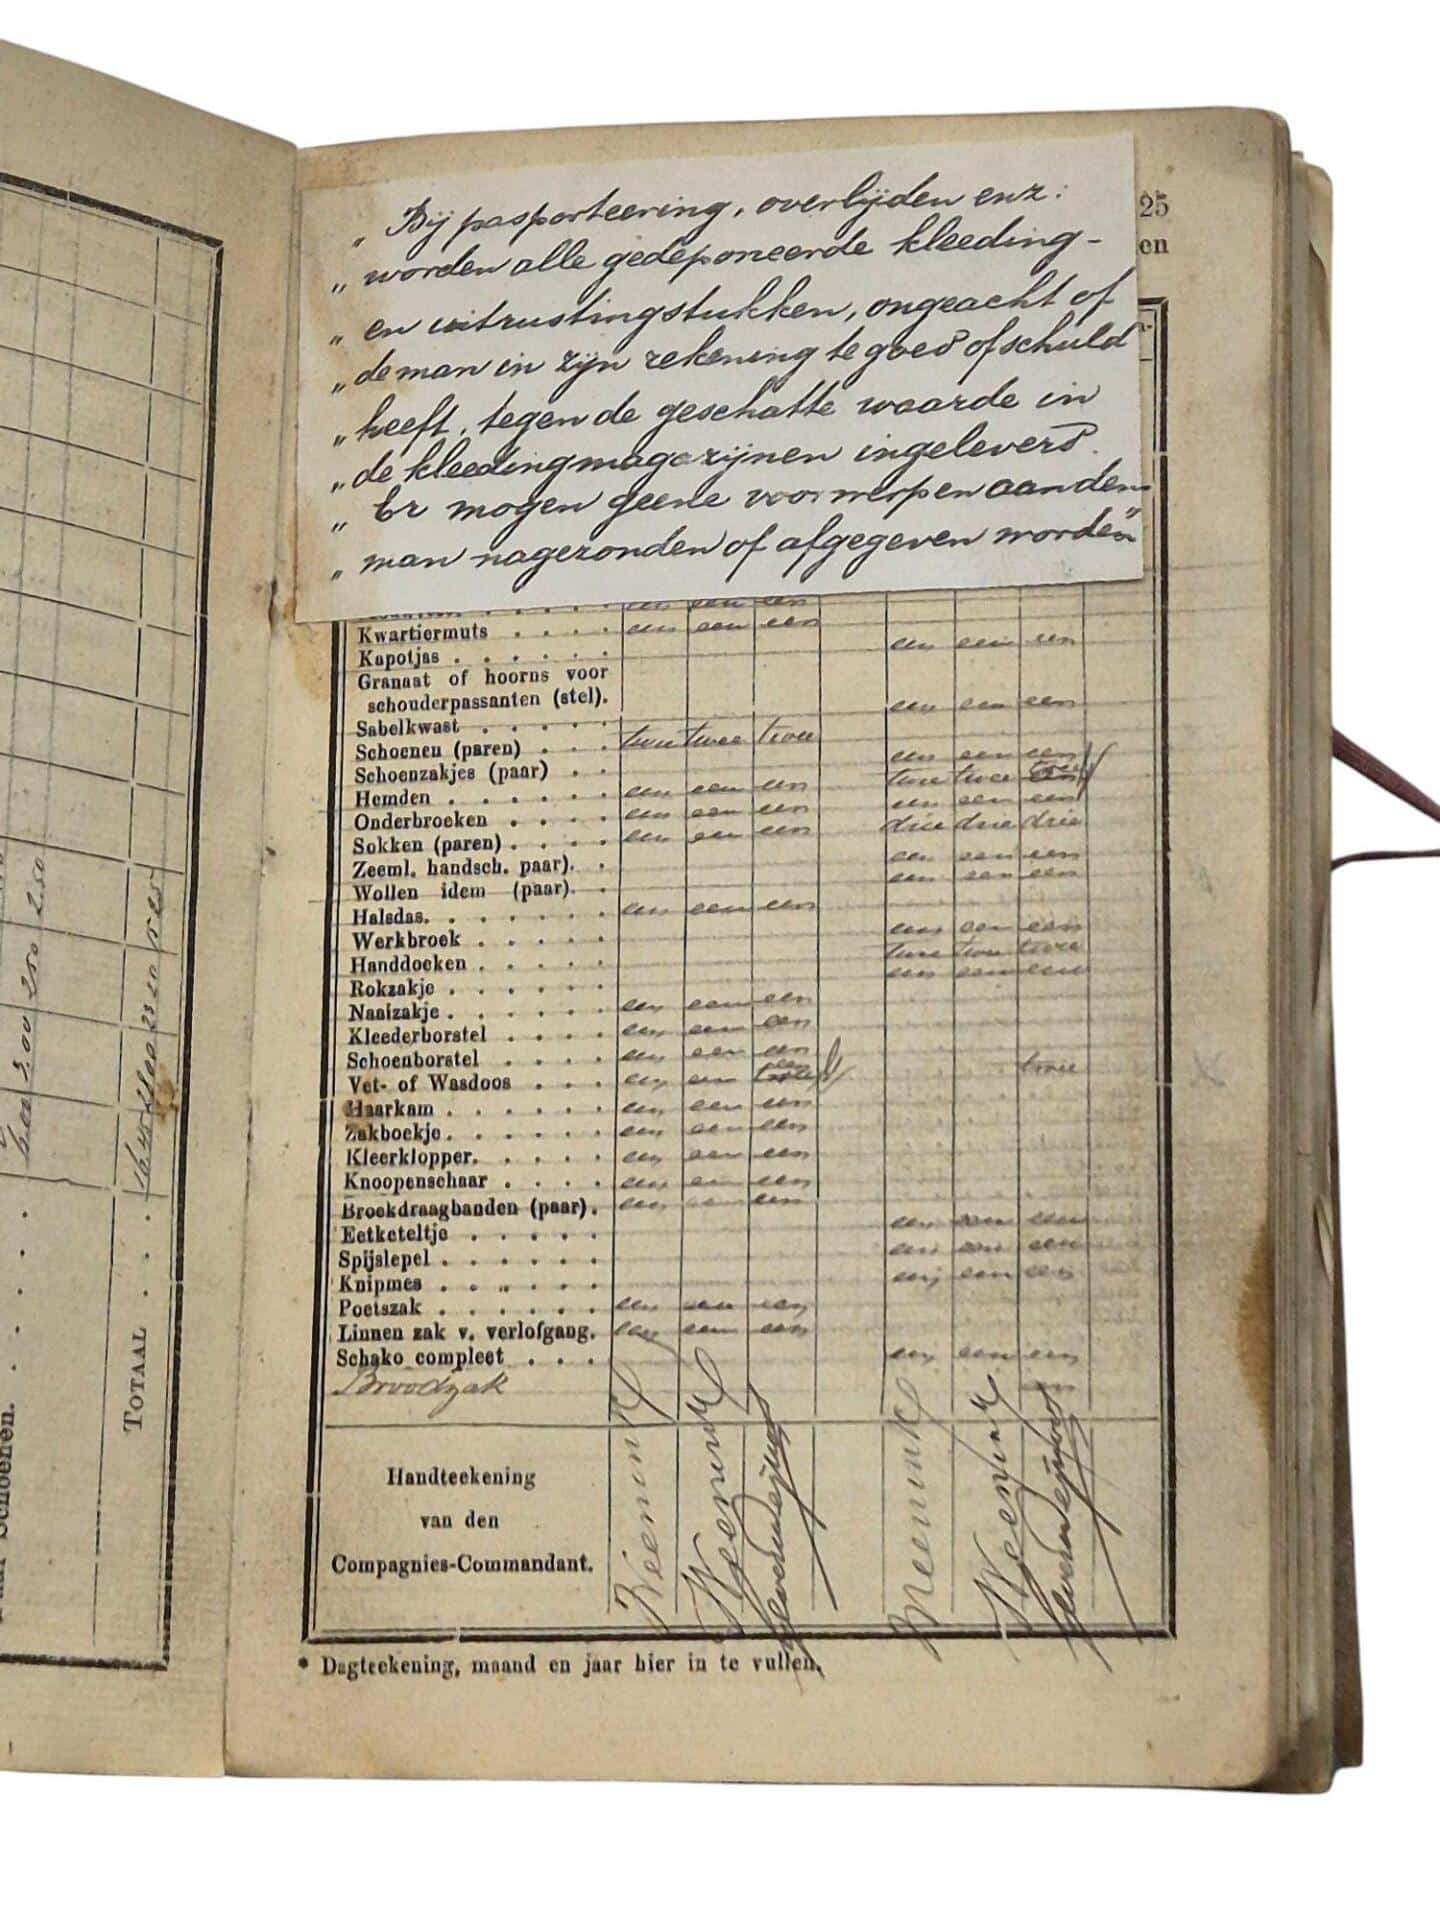 25
en
„ Bij pasporteering, overlijden enz:
„ worden alle gedeponeerde kleeding-
„ en uitrustingstukken, ongeacht of
„ de man in zijn rekening te goed of schuld
„ heeft, tegen de geschatte waarde in
„ de kleedingmagazijnen ingeleverd.
„ Er mogen geene voorwerpen aan den
„ man nagezonden of afgegeven worden"
een een een
Kwartiermuts . . . . een een een
Kapotjas . . . . . . een een een
Granaat of hoorns voor
schouderpassanten (stel). een een een
Sabelkwast . . . . . .
Schoenen (paren) . . . twee twee twee
Schoenzakjes (paar) . . een een een
Hemden . . . . . . een een een twee twee twee
Onderbroeken . . . . een een een een een een
Sokken (paren) . . . . een een een drie drie drie
Zeeml. handsch. paar). . een een een
Wollen idem (paar). . een een een
Halsdas. . . . . . . een een een
Werkbroek . . . . . een een een
Handdoeken . . . . . twee twee twee
Rokzakje . . . . . . een een een
Naaizakje . . . . . . een een een
Kleederborstel . . . . een een een
Schoenborstel . . . . een een een twee
Vet- of Wasdoos . . . een een een
Haarkam . . . . . . een een een
Zakboekje. . . . . . een een een
Kleerklopper. . . . . een een een
Knoopenschaar . . . . een een een
Broekdraagbanden (paar). een een een
Eetketeltje . . . . . een een een
Spijslepel . . . . . . een een een
Knipmes . . . . . . een een een
Poetszak . . . . . . een een een
Linnen zak v. verlofgang. een een een
Schako compleet . . . een een een
Broodzak
Handteekening
van den
Compagnies-Commandant.
* Dagteekening, maand en jaar hier in te vullen.
5.00 250 2.50
15 25
TOTAAL . . .
Schoenen.